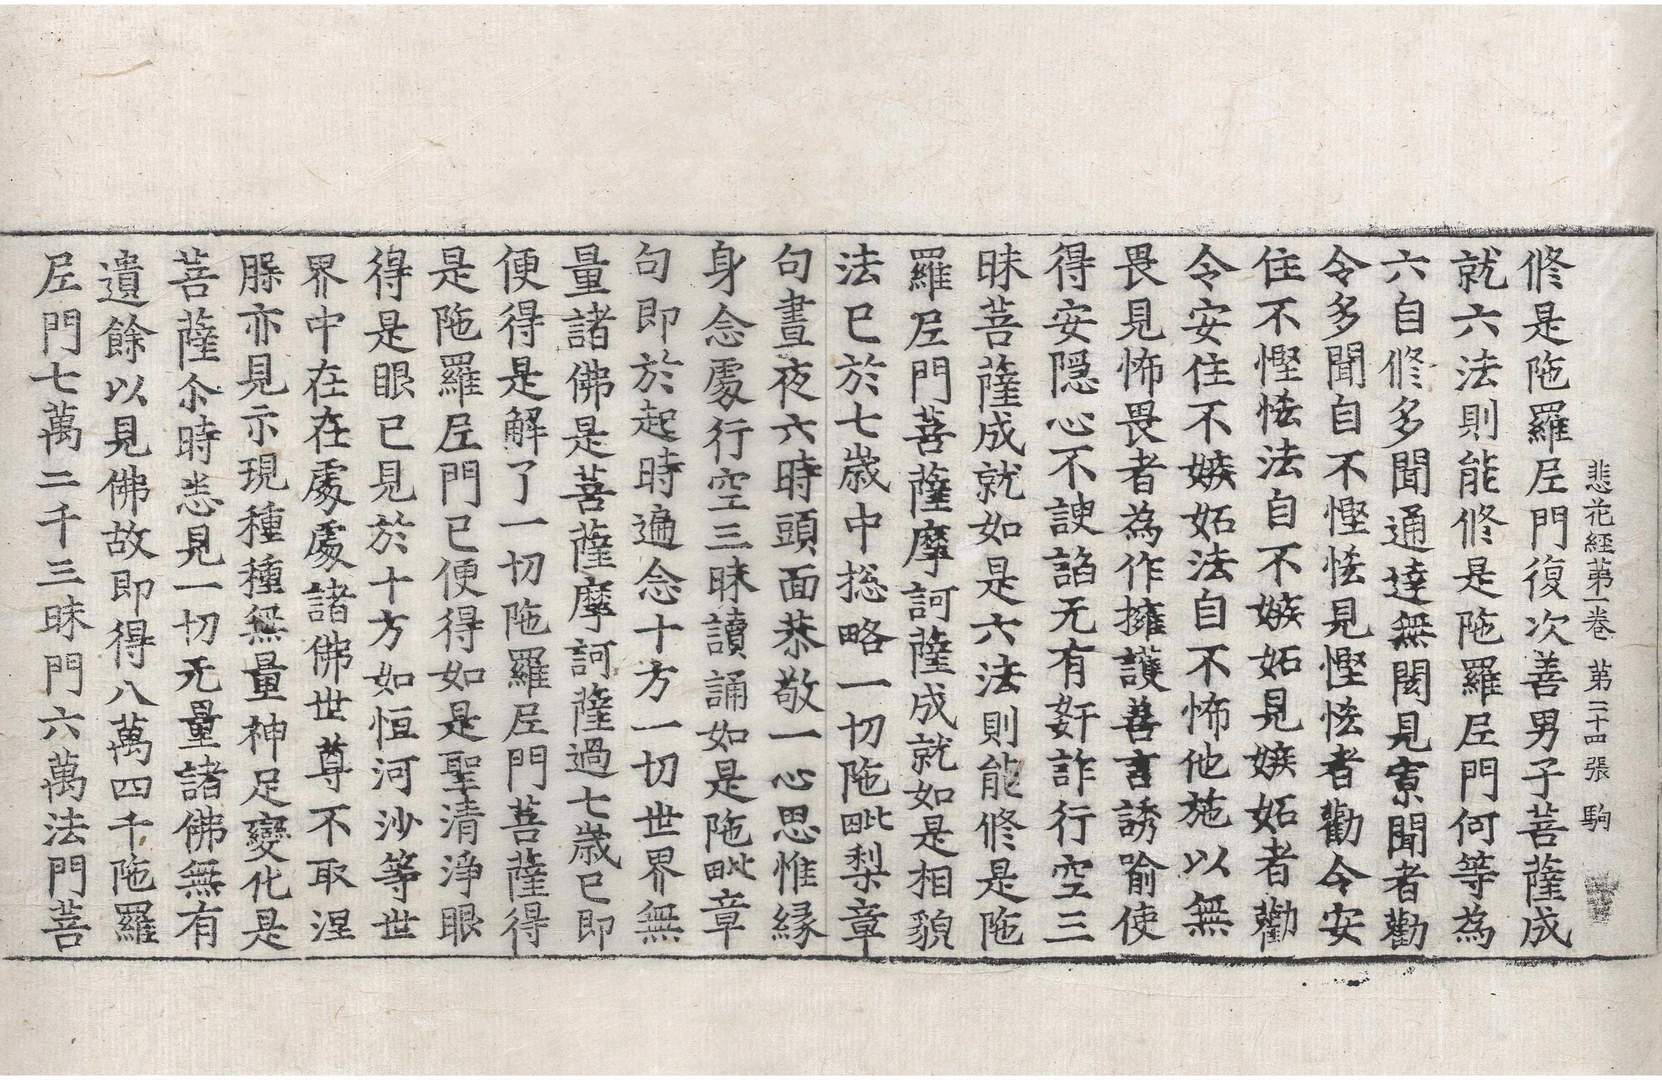 悲花経苐一卷 第二十四張 駒
修是陁羅𡰱門復次善男子菩薩成
就六法則能修是陁羅𡰱門何等為
六自修多聞通達無閡見寡聞者勸
令多聞自不慳恡見慳恡者勸令安
住不慳恡法自不嫉妬見嫉妬者勸
令安住不嫉妬法自不怖他施以無
畏見怖畏者為作擁護善言誘喻使
得安隱心不諛諂无有姧詐行空三
昧菩薩成就如是六法則能修是陁
羅𡰱門菩薩摩訶薩成就如是相貌
法已於七歲中捴略一切陁毗梨章
句晝夜六時頭面恭敬一心思惟緣
身念處行空三昧讀誦如是陁毗章
句即於起時遍念十方一切世界無
量諸佛是菩薩摩訶薩過七歲已即
便得是解了一切陁羅𡰱門菩薩得
是陁羅𡰱門已便得如是聖清淨眼
得是眼已見於十方如恒河沙等世
界中在在處處諸佛世尊不取涅
縣亦見示現種種無量神足變化是
菩薩尒時悉見一切无量諸佛無有
遺餘以見佛故即得八萬四千陁羅
𡰱門七萬二千三昧門六萬法門菩